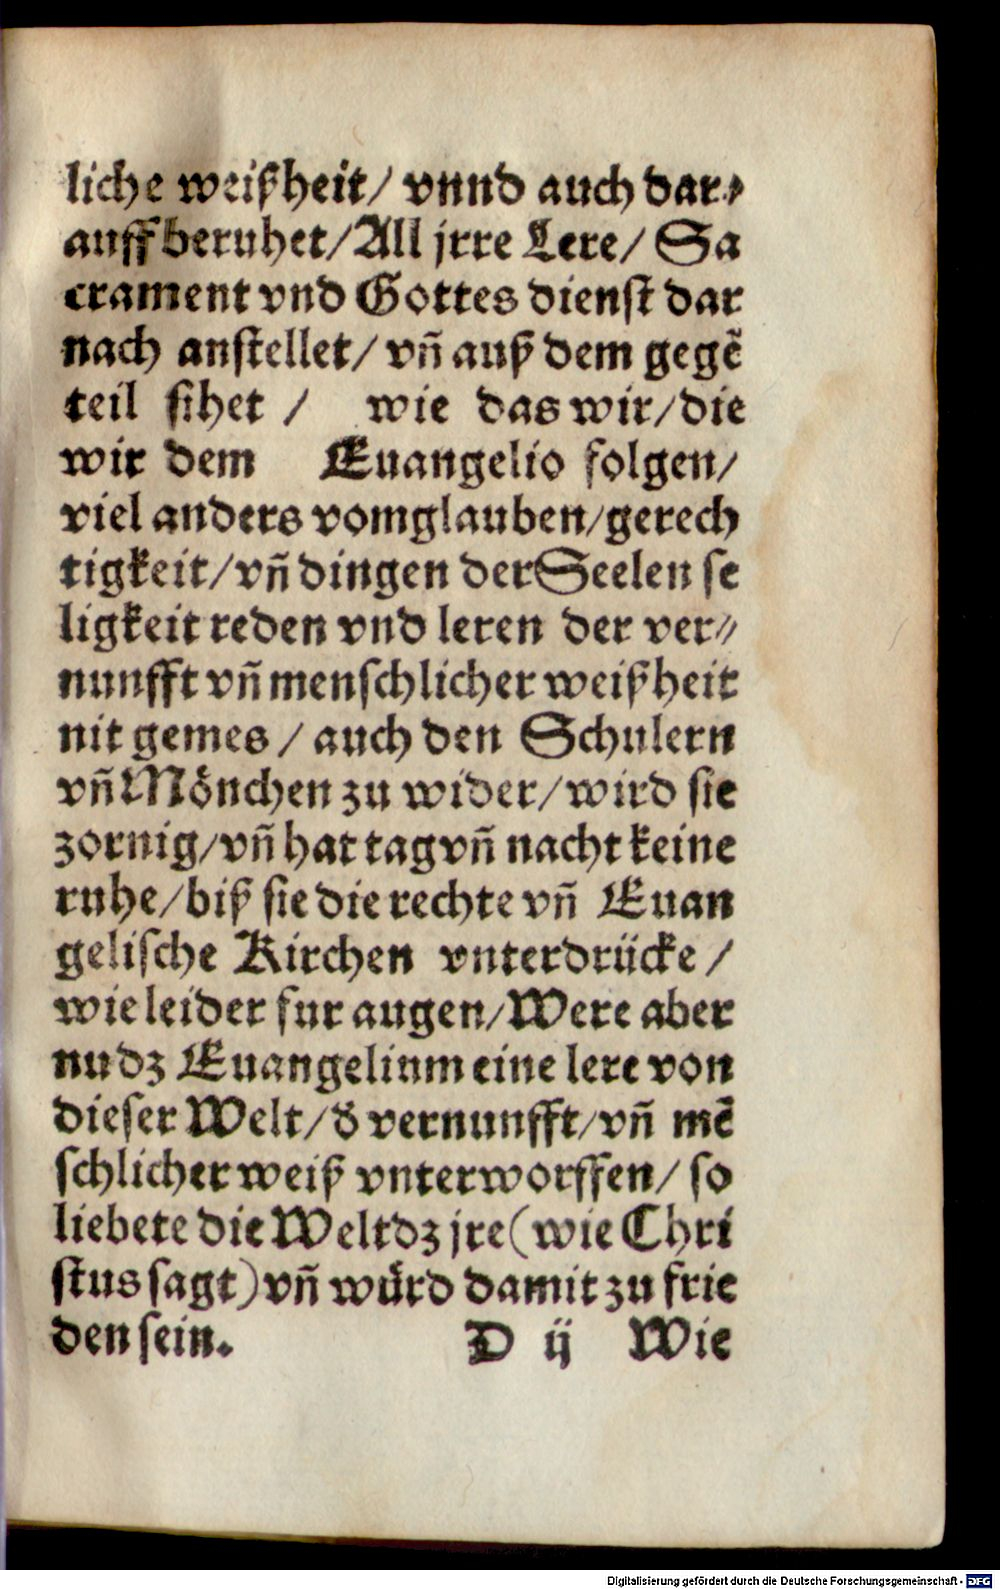 liche weißheit/ vnnd auch dar⸗
auff beruhet/All jrre Lere/ Sa
crament vnd Gottes dienst dar
nach anstellet/ vñ auß dem gegẽ
teil sihet / wie das wir/die
wir dem Euangelio folgen/
viel anders vomglauben/gerech
tigkeit/vñ dingen derSeelen se
ligkeit reden vnd leren der ver⸗
nunfft vñ menschlicher weißheit
nit gemes / auch den Schulern
vñ Mönchen zu wider/wird sie
zornig/vñ hat tag vñ nacht keine
ruhe/biß sie die rechte vñ Euan
gelische Kirchen vnterdrücke /
wie leider fur augen/Were aber
nu dz Euangelium eine lere von
dieser Welt/d̕ vernunfft/vñ mẽ
schlicher weiß vnterworffen/ so
liebete die Welt dz jre (wie Chri
stus sagt) vñ würd damit zu frie
den sein. D ij Wie
Digitalisierung gefördert durch die Deutsche Forschungsgemeinschaft - DFG